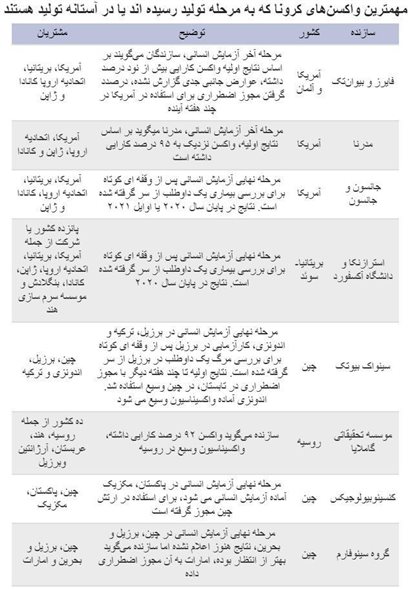 مهمترین واکسن‌های کرونا که به مرحله تولید رسیده اند یا در آستانه تولید هستند
سازنده کشور توضیح مشتریان
فایزر و بیون‌تک
آمریکا
و آلمان
مرحله آخر آزمایش انسانی، سازندگان می‌گویند بر
اساس نتایج اولیه واکسن کارایی بیش از نود درصد
داشته، عوارض جانبی جدی گزارش نشده، درصدد
گرفتن مجوز اضطراری برای استفاده در آمریکا در
چند هفته آینده
آمریکا، بریتانیا،
اتحادیه اروپا کانادا
و ژاپن
مدرنا
آمریکا
مرحله آخر آزمایش انسانی، مدرنا میگوید بر اساس
نتایج اولیه، واکسن نزدیک به ۹۵ درصد کارایی
داشته است
آمریکا، اتحادیه
اروپا، ژاپن و کانادا
جانسون و
جانسون
آمریکا
مرحله نهایی آزمایش انسانی پس از وقفه ای کوتاه
برای بررسی بیماری یک داوطلب از سر گرفته شده
است. نتایج در پایان سال ۲۰۲۰ یا اوایل ۲۰۲۱
آمریکا، بریتانیا،
اتحادیه اروپا، کانادا
و ژاپن
استرازنکا و
دانشگاه آکسفورد
بریتانیا-
سوئد
مرحله نهایی آزمایش انسانی پس از وقفه ای کوتاه
برای بررسی بیماری یک داوطلب از سر گرفته شده
است. نتایج در پایان سال ۲۰۲۰
پانزده کشور یا
شرکت از جمله
آمریکا، بریتانیا،
اتحادیه اروپا، ژاپن،
کانادا، بنگلادش و
موسسه سرم سازی
هند
سینواک بیوتک
چین
مرحله نهایی آزمایش انسانی در برزیل، ترکیه و
اندونزی، کارآزمایی در برزیل پس از وقفه ای کوتاه
برای بررسی مرگ یک داوطلب در برزیل از سر
گرفته شده است. نتایج اولیه تا چند هفته دیگر با مجوز
اضطراری در تابستان، در چین وسیع استفاده شد.
اندونزی آماده واکسیناسیون وسیع می شود
چین، برزیل،
اندونزی و ترکیه
موسسه تحقیقاتی
گامالایا
روسیه
سازنده می‌گوید واکسن ۹۲ درصد کارایی داشته،
واکسیناسیون وسیع در روسیه
ده کشور از جمله
روسیه، هند،
عربستان، آرژانتین
وبرزیل
کنسینوبیولوجیکس
چین
مرحله نهایی آزمایش انسانی در پاکستان، مکزیک
آماده آزمایش انسانی می شود، برای استفاده در ارتش
چین مجوز گرفته است
چین، پاکستان،
مکزیک
گروه سینوفارم
چین
مرحله نهایی آزمایش انسانی در چین، برزیل و
بحرین، نتایج هنوز اعلام نشده اما سازنده می‌گوید
بهتر از انتظار بوده، امارات به آن مجوز اضطراری
داده
چین، برزیل و
بحرین و امارات